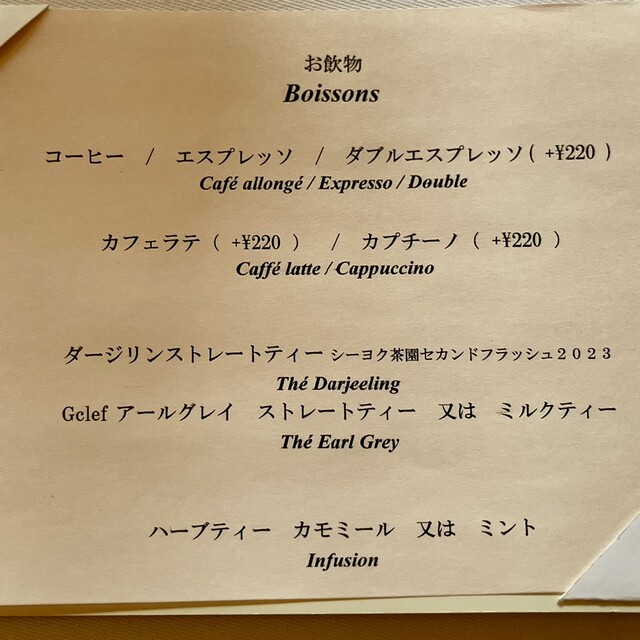 お飲物
Boissons
コーヒー / エスプレッソ / ダブルエスプレッソ( +¥220 )
Café allongé / Expresso / Double
カフェラテ ( +¥220 ) / カプチーノ ( +¥220 )
Caffé latte / Cappuccino
ダージリンストレートティー シーヨク茶園セカンドフラッシュ２０２３
Thé Darjeeling
Gclef アールグレイ ストレートティー 又は ミルクティー
Thé Earl Grey
ハーブティー カモミール 又は ミント
Infusion